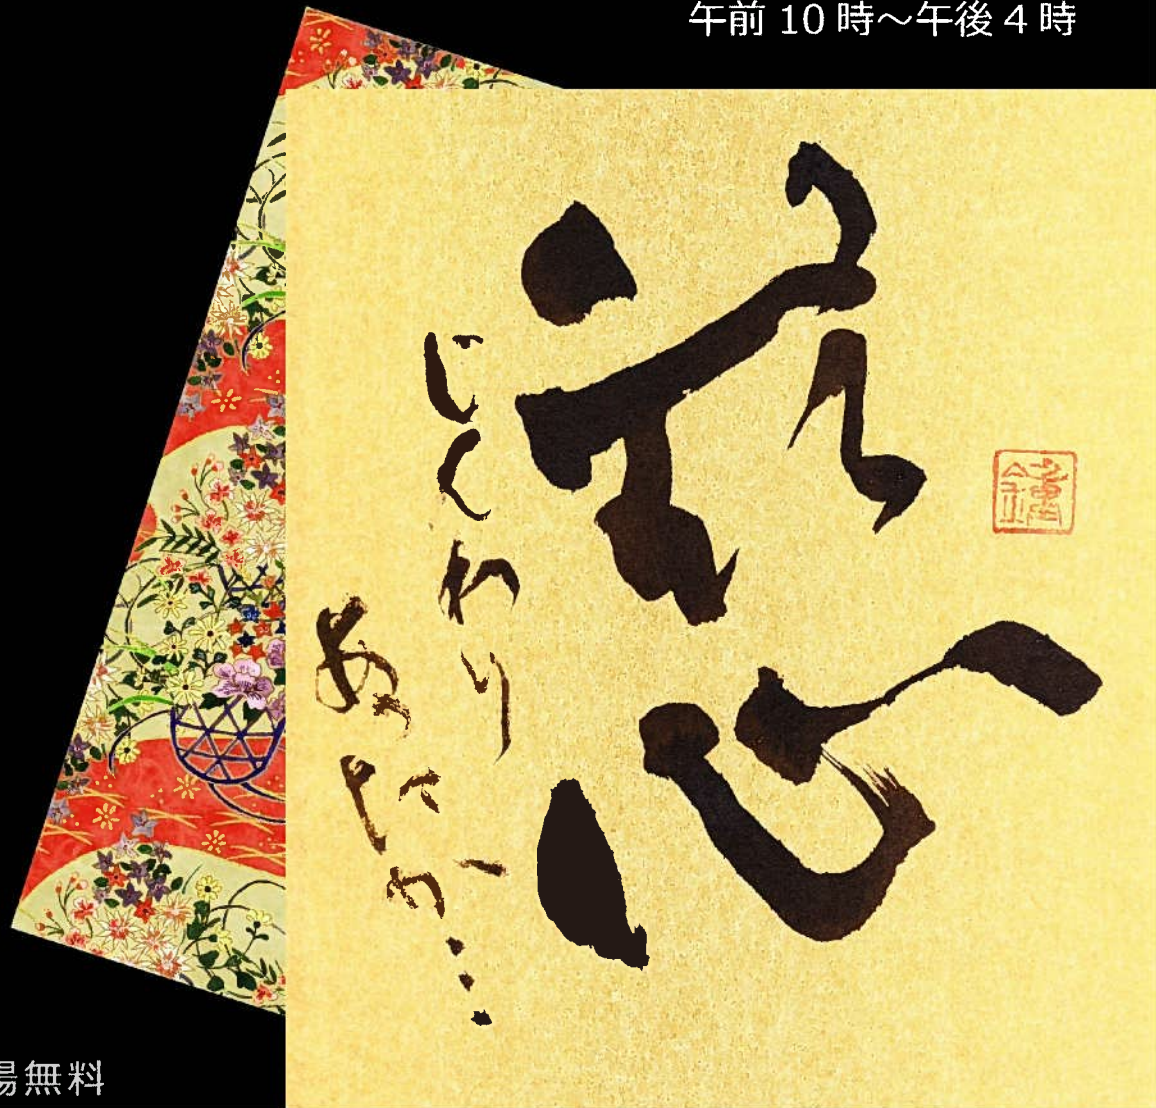 午前 10 時～午後 4 時
慈
じんわり
あったか…
場無料